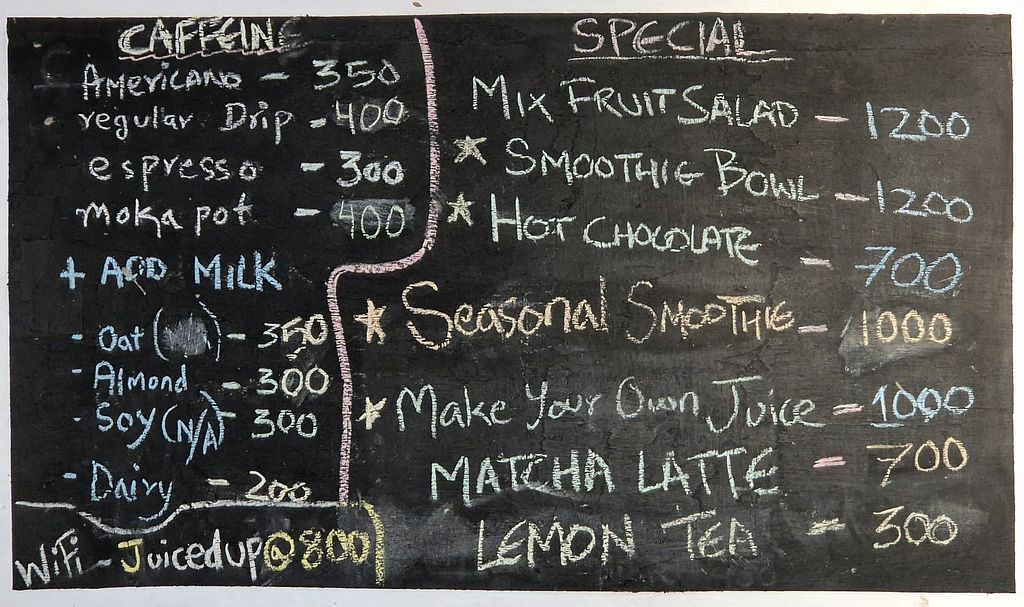 CAFFEINE
Americano - 350
regular Drip - 400
espresso - 300
moka pot - 400
+ ADD MILK
- Oat ( ) - 350
- Almond - 300
- Soy (N/A) - 300
- Dairy - 200
WiFi - Juicedup@800
SPECIAL
MIX FRUIT SALAD - 1200
★ SMOOTHIE BOWL - 1200
★ HOT CHOCOLATE - 700
★ Seasonal SMOOTHIE - 1000
★ Make Your Own Juice = 1000
MATCHA LATTE = 700
LEMON TEA - 300